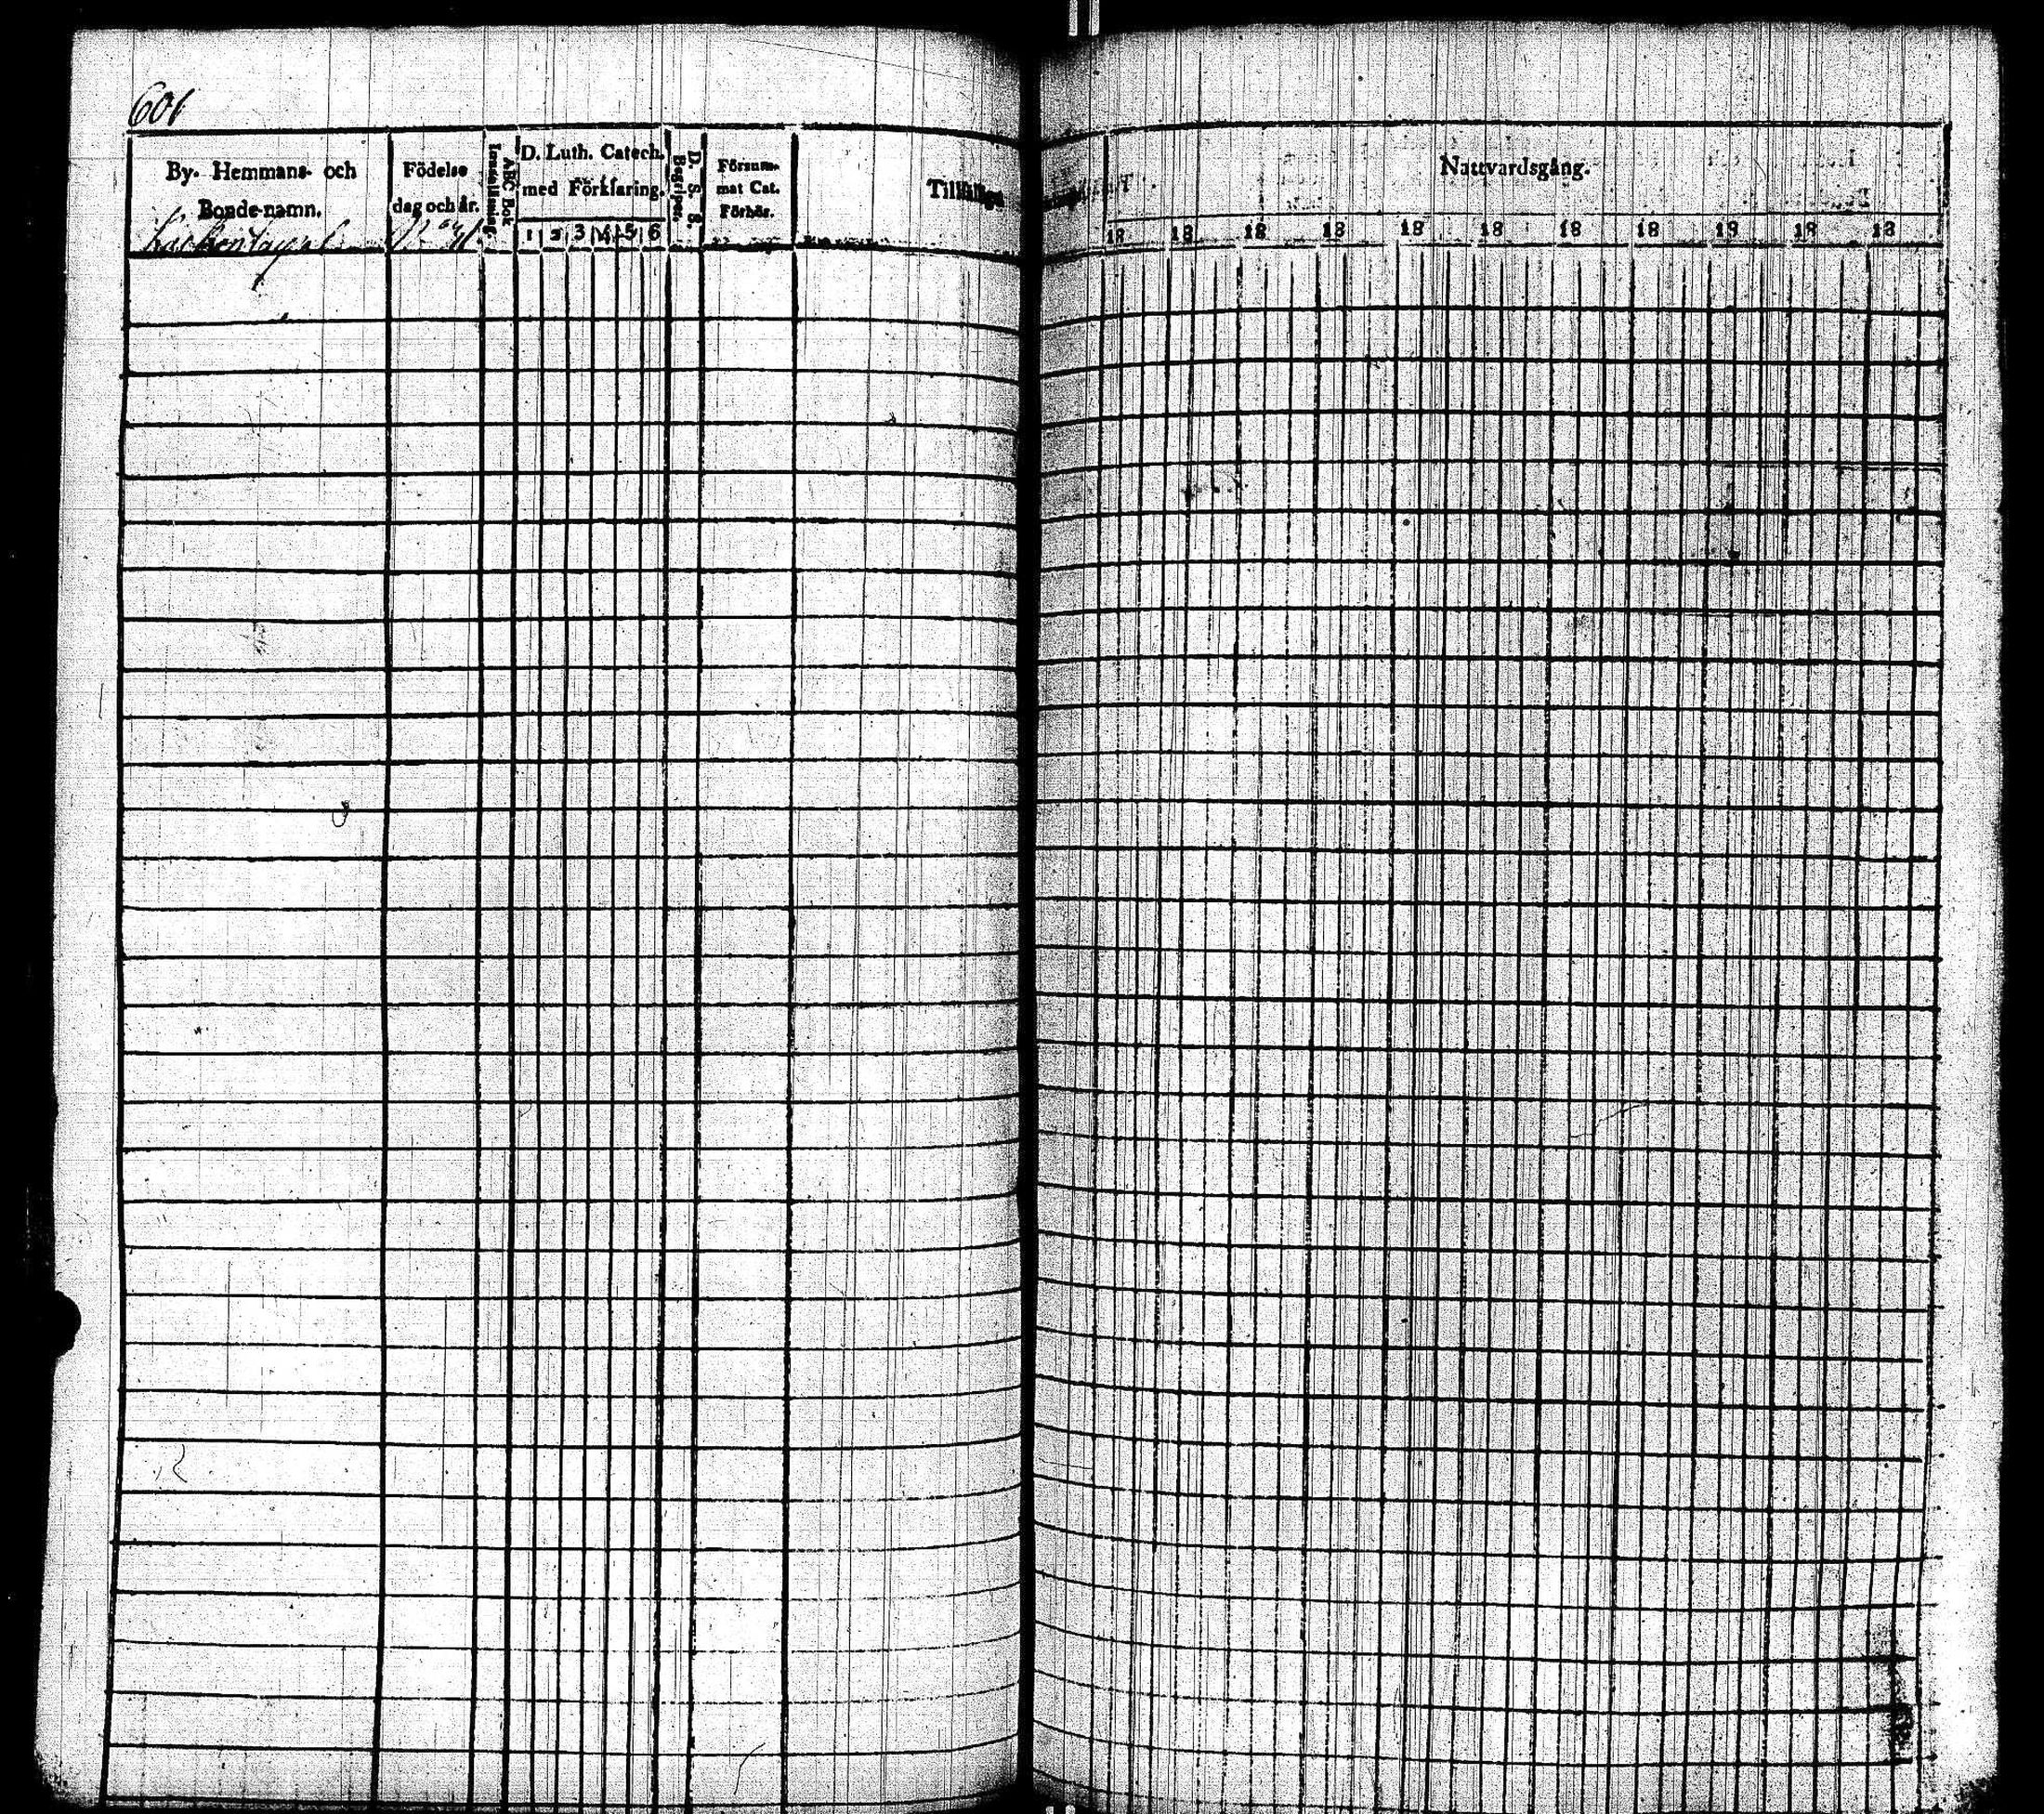 601
By- Hemmans- och
Bonde-namn.
Födelse
dag och år.
ABC Bok
Innanläsning.
D. Luth. Catech.
med Förklaring.
1 2 3 4 5 6
D. S. S.
Begriper.
Försum-
mat Cat.
Förhör.
Tillfälliga
Nattvardsgång.
18 18 18 18 18 18 18 18 18 18 18